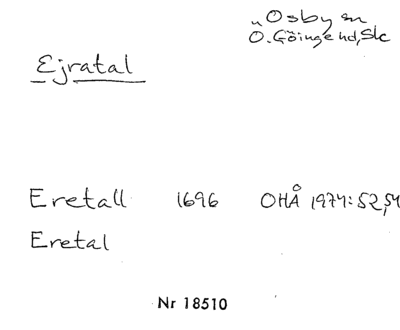 Osby sn
Ö. Göinge hd, Sk
Ejratal
Eretall 1696 OHÅ 1974:52,54
Eretal
Nr 18510